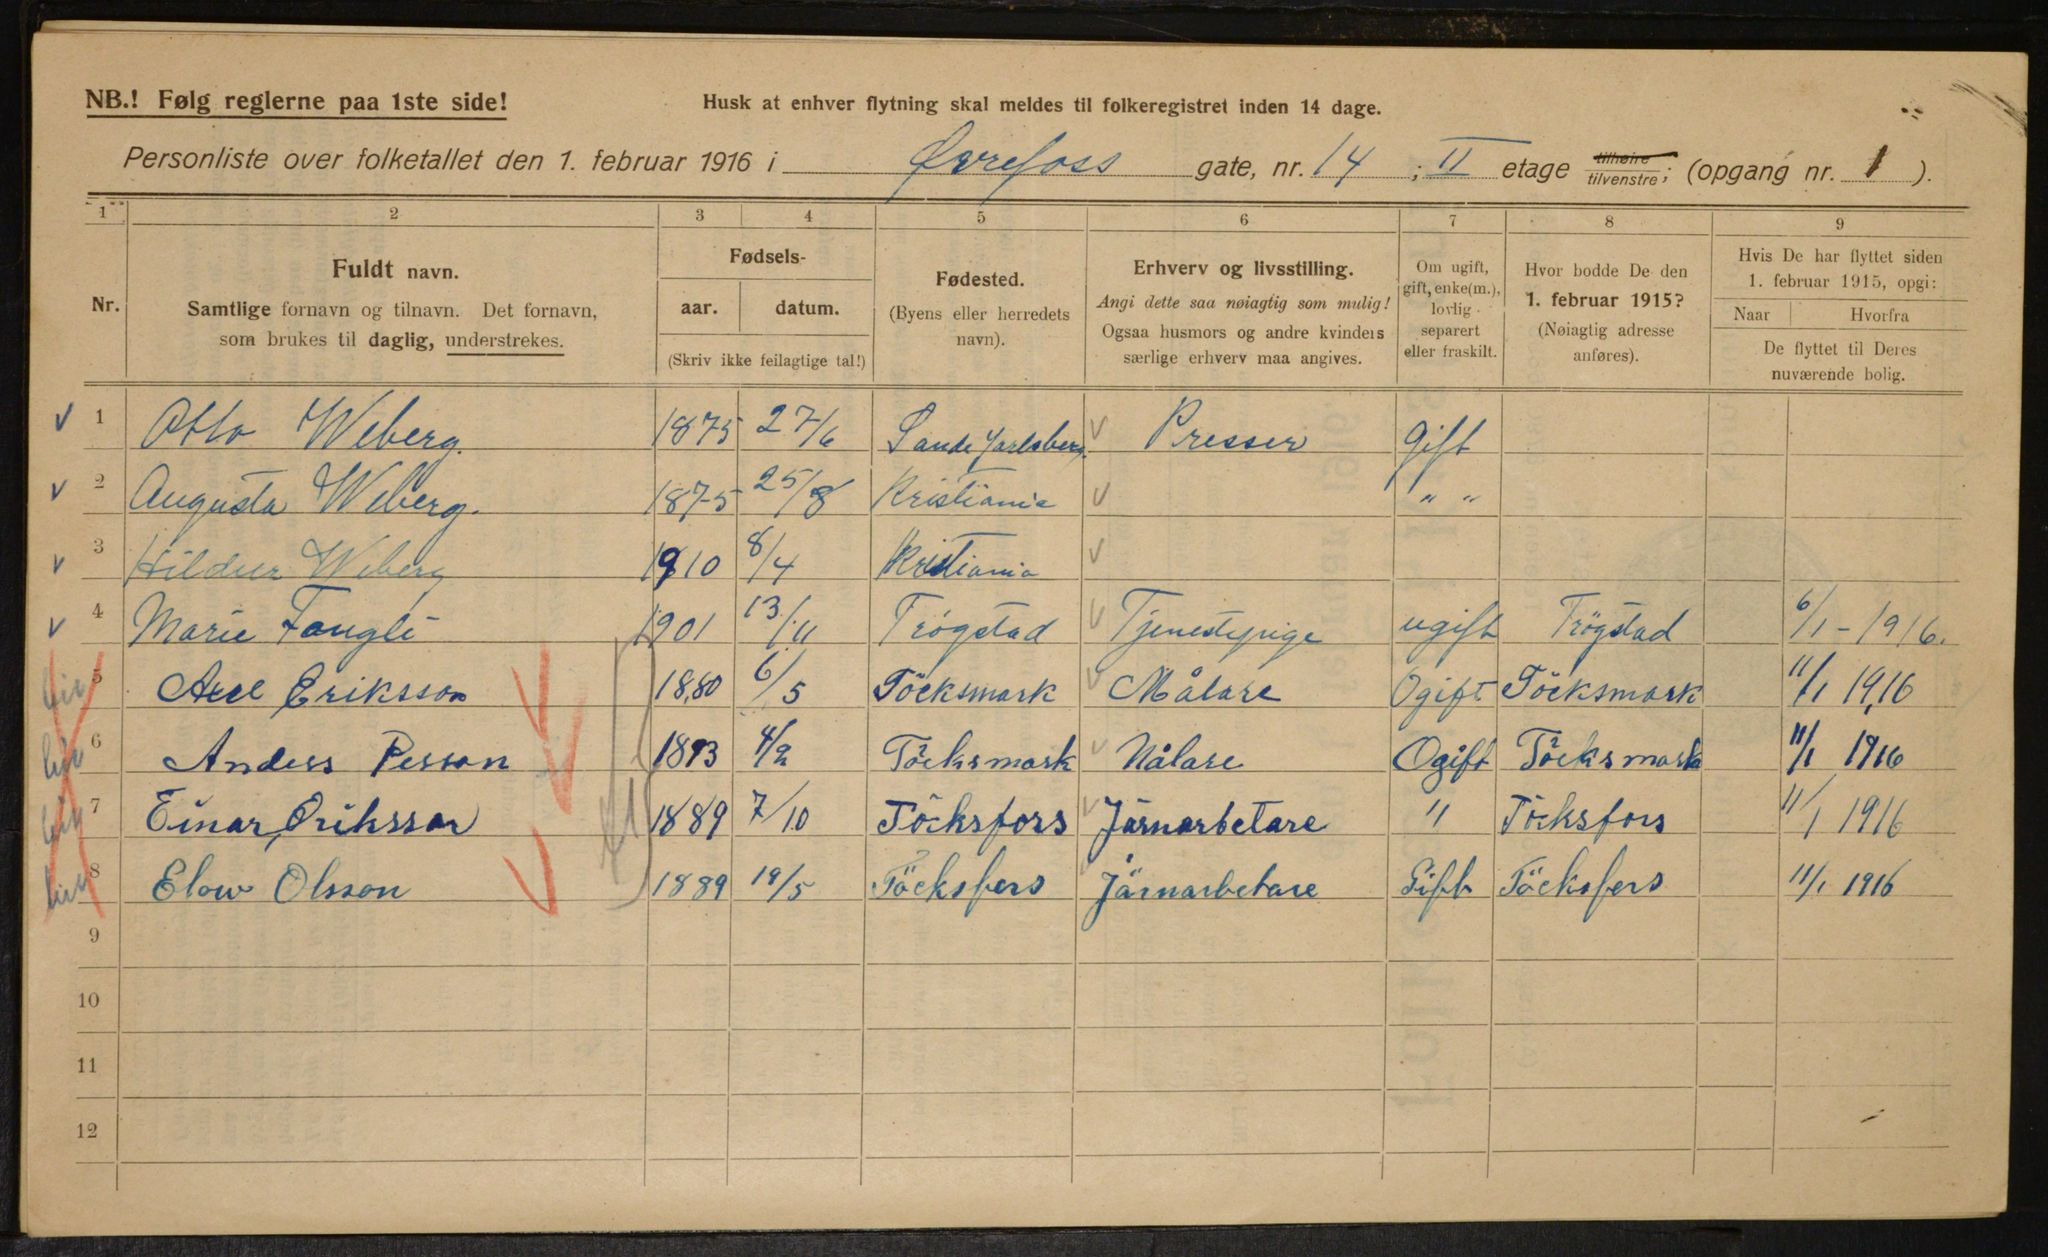 NB.! Følg reglerne paa 1ste side!
Husk at enhver flytning skal meldes til folkeregistret inden 14 dage.
Personliste over folketallet den 1. februar 1916 i Øvrefoss gate, nr. 14 ; II etage tilhøire tilvenstre; (opgang nr. 1 ).
1 2 3 4 5 6 7 8 9
Nr.
Fuldt navn.
Samtlige fornavn og tilnavn. Det fornavn,
som brukes til daglig, understrekes.
Fødsels-
aar. datum.
(Skriv ikke feilagtige tal!)
Fødested.
(Byens eller herredets
navn).
Erhverv og livsstilling.
Angi dette saa nøiagtig som mulig!
Ogsaa husmors og andre kvinders
særlige erhverv maa angives.
Om ugift,
gift, enke(m.),
lovlig
separert
eller fraskilt.
Hvor bodde De den
1. februar 1915?
(Nøiagtig adresse
anføres).
Hvis De har flyttet siden
1. februar 1915, opgi:
Naar Hvorfra
De flyttet til Deres
nuværende bolig.
1 Otto Weberg. 1875 27/6 Sande Jarlsberg. Presser gift
2 Augusta Weberg. 1875 25/8 Kristiania " "
3 Hildur Weberg 1910 8/4 Kristiania
4 Marie 1901 13/11 Trøgstad Tjenestepige ugift Trøgstad 6/1 - 1916.
5 Axel Eriksson 1880 6/5 Töcksmark Målare Ogift Töcksmark 11/1 1916
6 Anders Persson 4/2 Töcksmark Målare Ogift Töcksmark 11/1 1916
7 Einar Eriksson 1889 7/10 Töcksfors Järnarbetare " Töcksfors 11/1 1916
8 Elow Olsson 1889 19/5 Töcksfors Järnarbetare Gift Töcksfors 11/1 1916
9
10
11
12